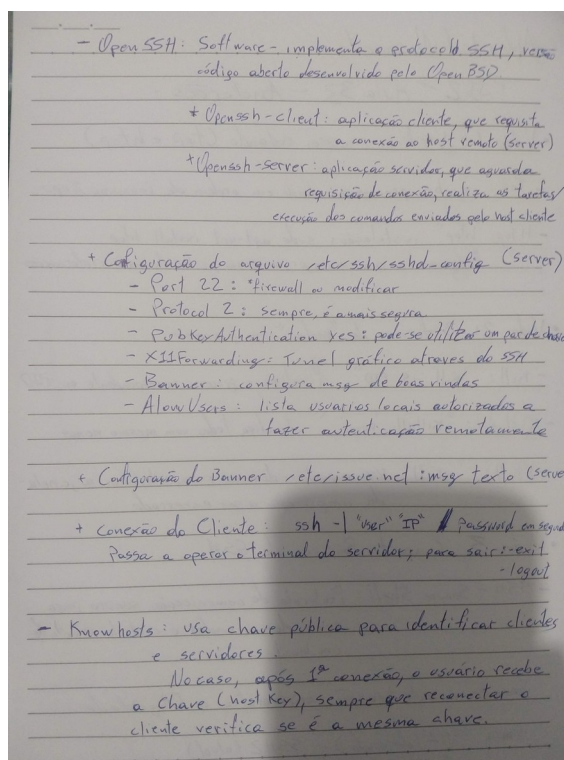 - OpenSSH: Software - implementa o protocolo SSH, versão
código aberto desenvolvido pelo OpenBSD
+ Openssh-client: aplicação cliente, que requisita
a conexão ao host remoto (server)
+ Openssh-server: aplicação servidor, que aguarda
requisição de conexão, realiza as tarefas/
execução dos comandos enviados pelo host cliente
+ Configuração do arquivo /etc/ssh/sshd-config (server)
- Port 22: firewall ou modificar
- Protocol 2: sempre, é a mais segura
- PubKeyAuthentication yes: pode-se utilizar um par de chave
- X11Forwarding: Tunel gráfico atraves do SSH
- Banner: configura msg de boas vindas
- AlowUsers: lista usuarios locais autorizados a
fazer autenticação remotamente
+ Configuração do Banner /etc/issue.net: msg texto (serve
+ Conexão do Cliente: ssh -l "user" "IP" Password em segu
Passa a operar o terminal do servidor; para sair: -exit
- logout
- Knowhosts: usa chave pública para identificar clientes
e servidores.
No caso, após 1ª conexão, o usuário recebe
a chave (host key), sempre que reconectar o
cliente verifica se é a mesma chave.